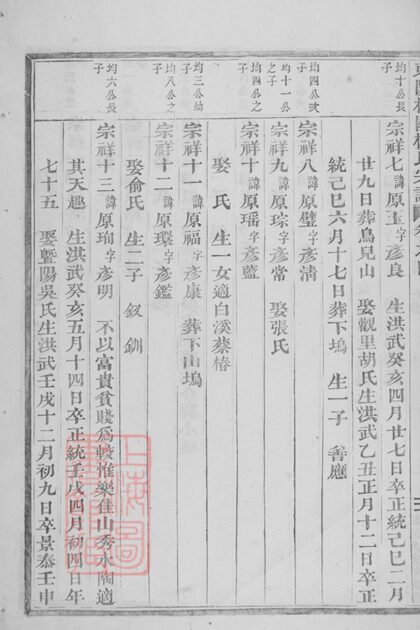 均十公長子
宗祥七 諱原玉字彥良 生洪武癸亥四月廿七日卒正統己巳二月
廿九日葬烏兒山 娶觀里胡氏生洪武乙丑正月十二日卒正
統己巳六月十七日葬下塢 生一子 善應
均四公次子
宗祥八 諱原璧字彥清
均十一公之子
宗祥九 諱原琮字彥常 娶張氏
均四公之子
宗祥十 諱原瑤字彥藍
娶 氏 生一女適白溪蔡椿
均三公幼子
宗祥十一 諱原福字彥康 葬下山塢
均八公之子
宗祥十二 諱原環字彥鑑
娶俞氏 生二子 釵 釧
均六公長子
宗祥十三 諱原珣字彥明 不以富貴貧賤爲較惟樂佳山秀水陶適
其天趣 生洪武癸亥五月十四日卒正統壬戌四月初四日年
七十五 娶暨陽吳氏生洪武壬戌十二月初九日卒景泰壬申